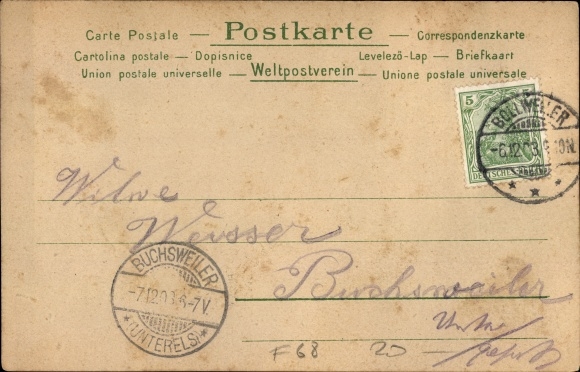 Carte Postale — Postkarte — Correspondenzkarte
Cartolina postale — Dopisnice Levelező-Lap — Briefkaart
Union postale universelle — Weltpostverein — Unione postale universale
5
DEUTSCHES
BOLLWEILER
-6.12.03
Witwe
Weisser
Buchsweiler
BUCHSWEILER
-7.12.03.6-7V.
*(UNTERELS.)*
F68 20